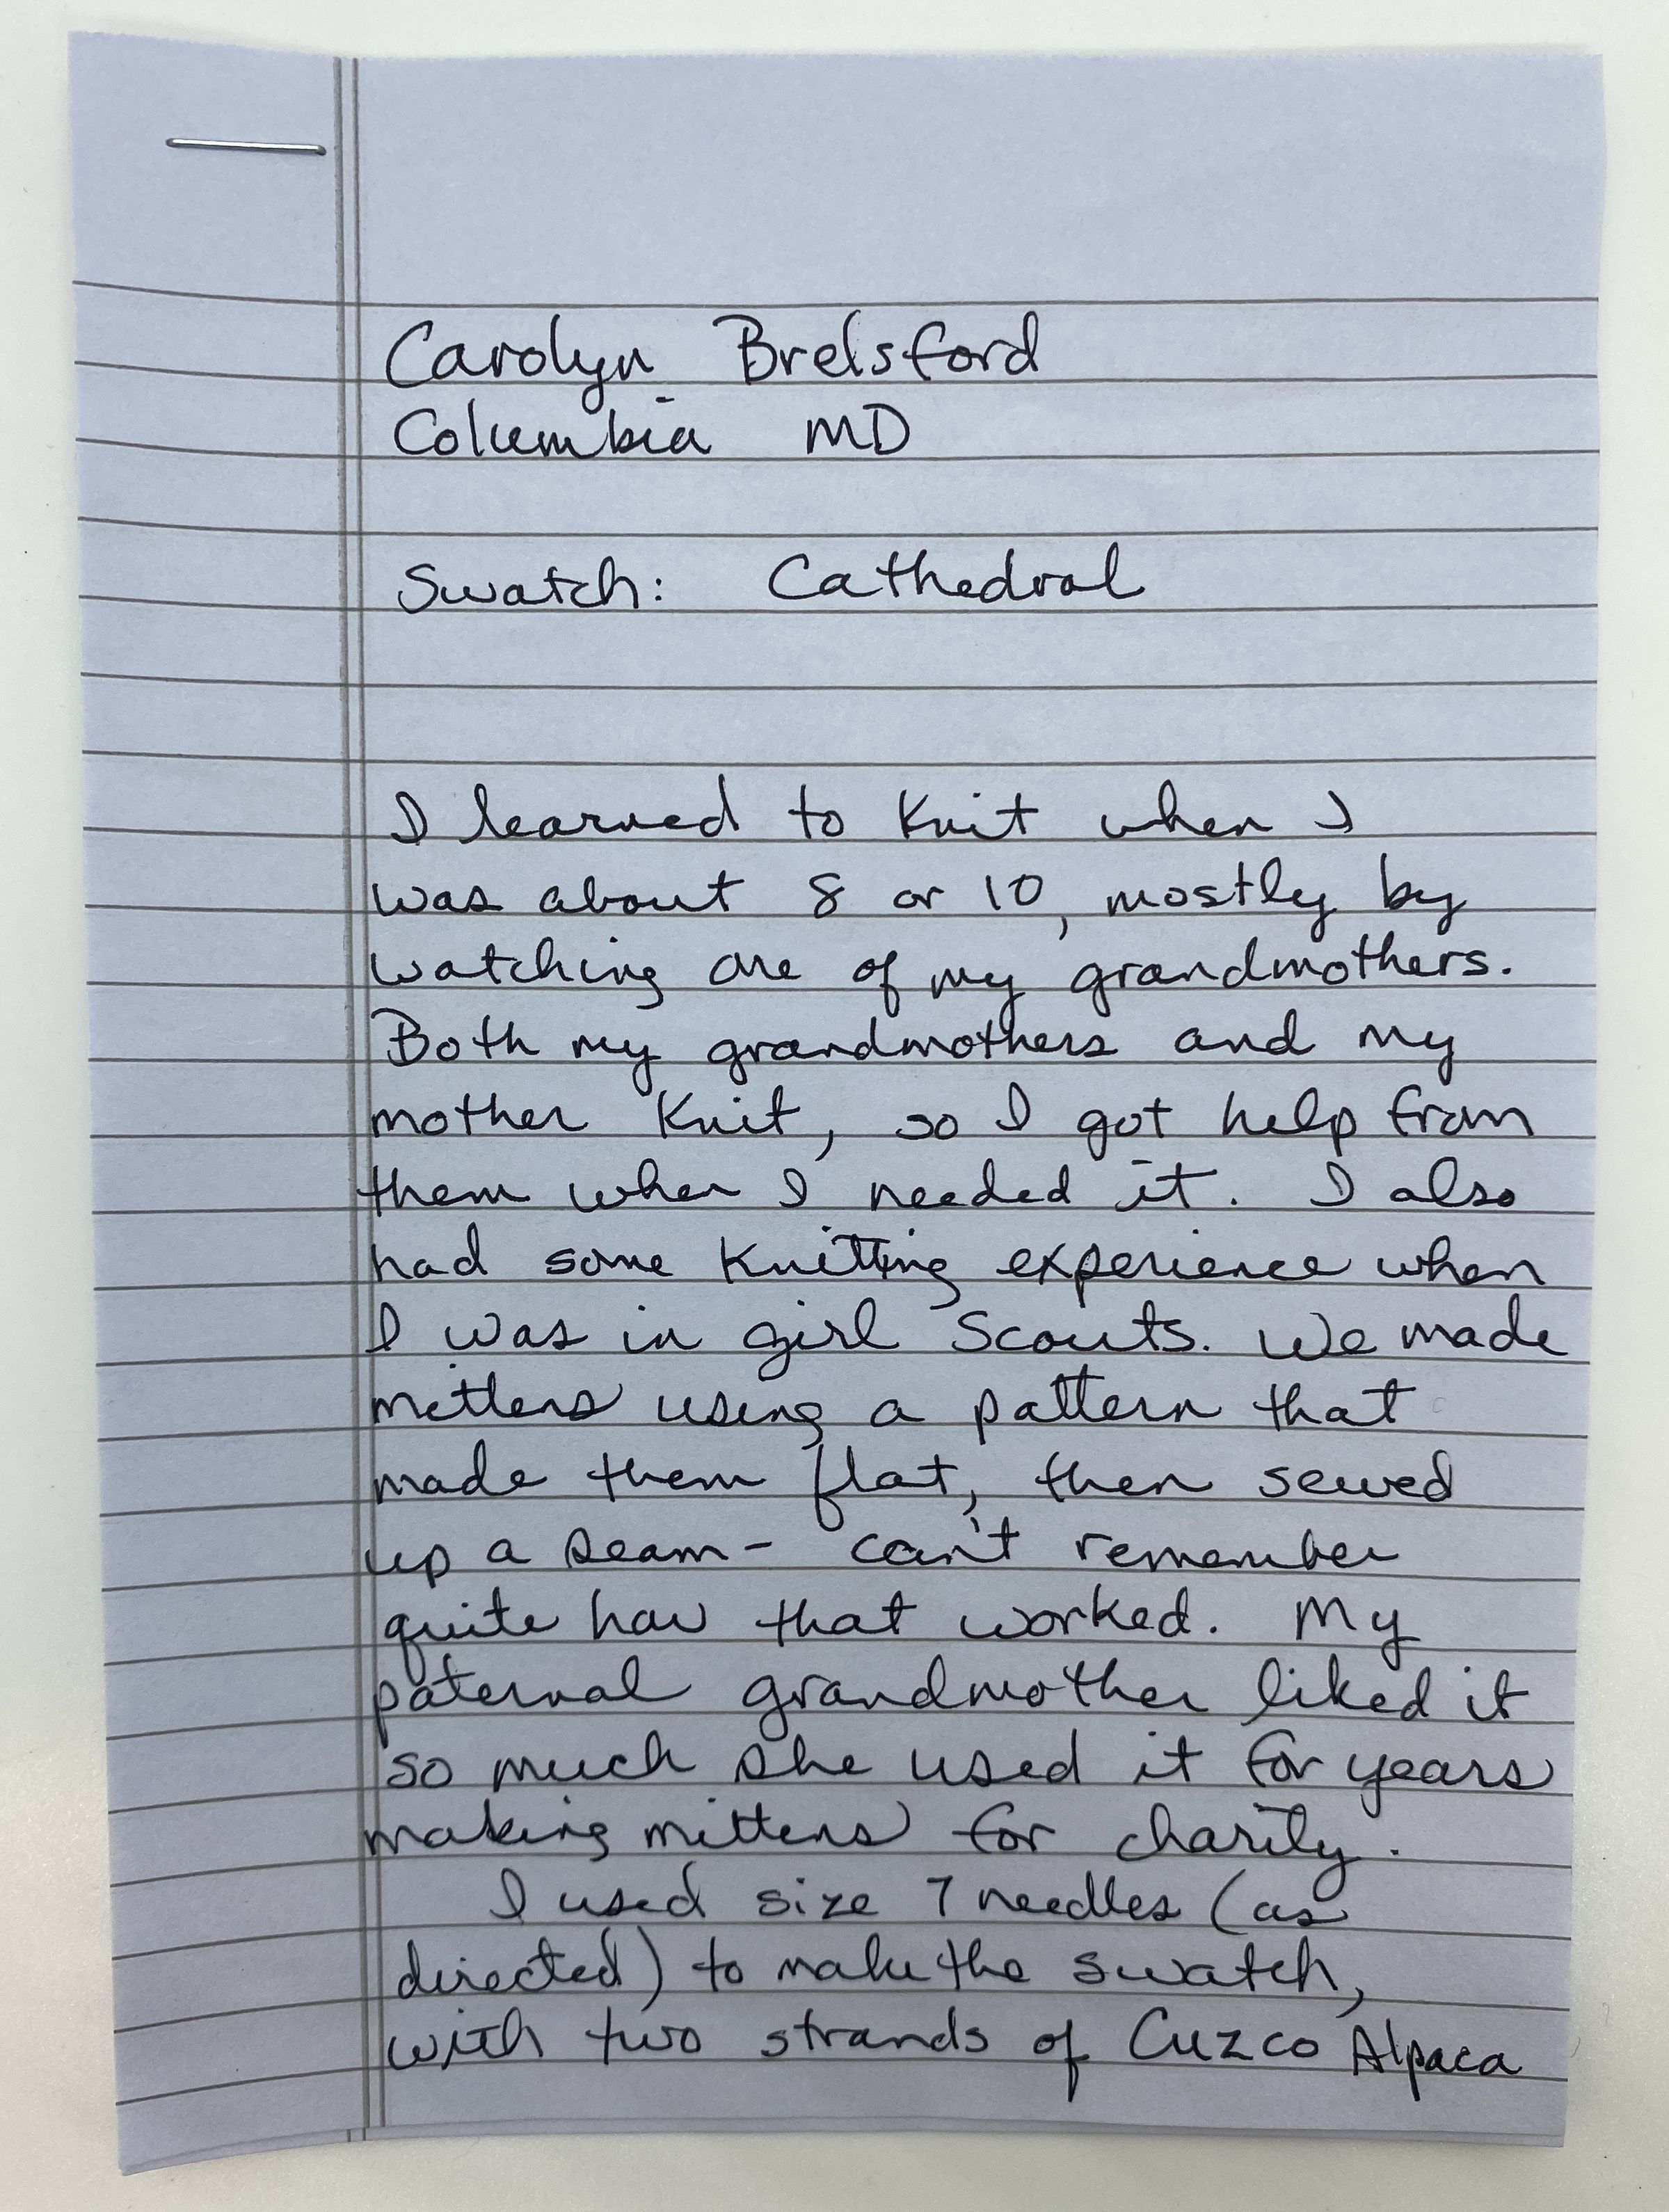 Carolyn Brelsford
Columbia MD
Swatch: Cathedral
I learned to knit when I
was about 8 or 10, mostly by
watching one of my grandmothers.
Both my grandmothers and my
mother knit, so I got help from
them when I needed it. I also
had some knitting experience when
I was in girl scouts. We made
mittens using a pattern that
made them flat, then sewed
up a seam - can't remember
quite how that worked. My
paternal grandmother liked it
so much she used it for years
making mittens for charity.
I used size 7 needles (as
directed) to make the swatch,
with two strands of Cuzco Alpaca